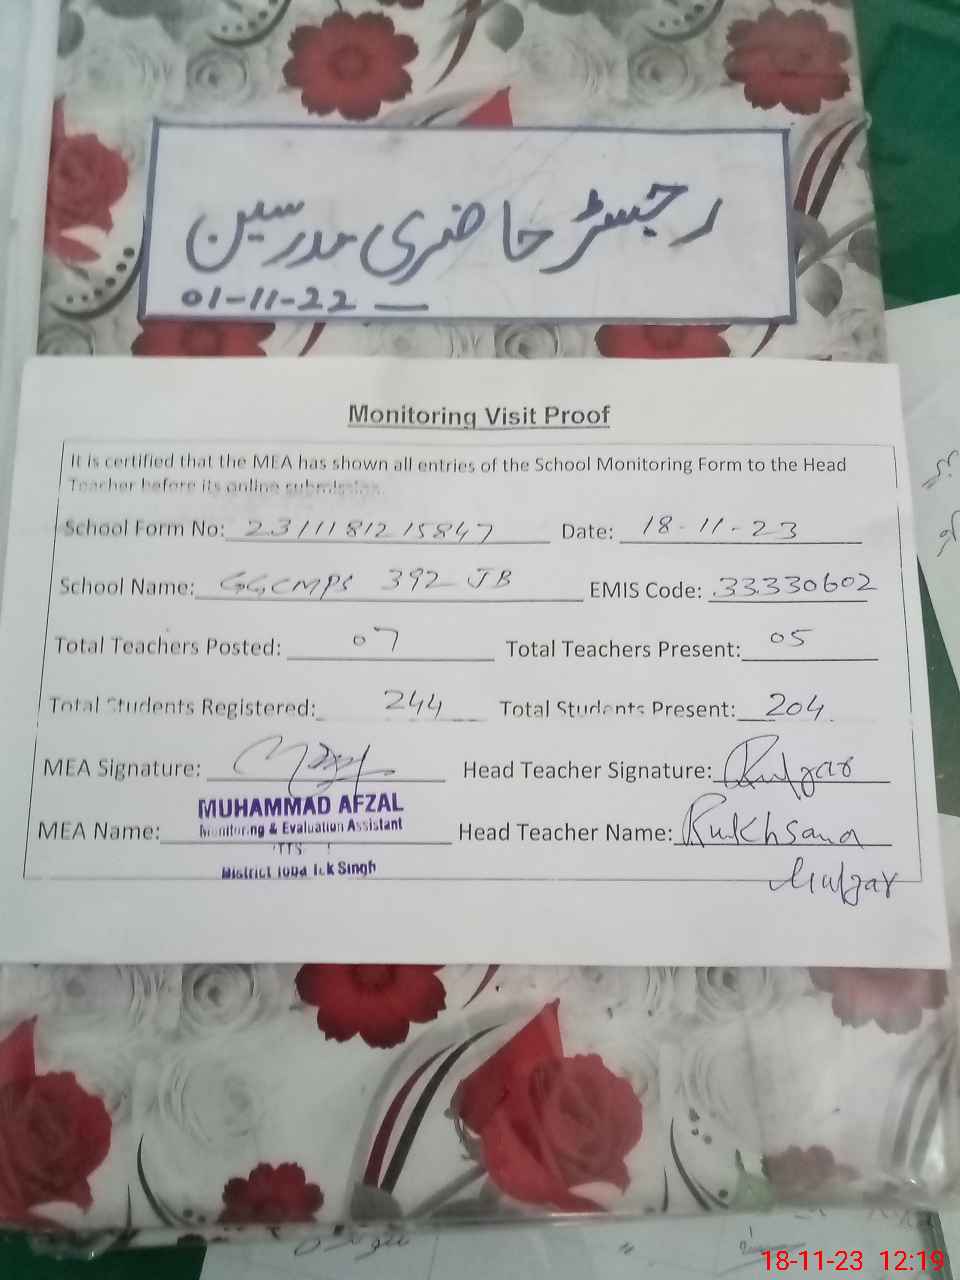 رجسٹر حاضری مدرسین
01-11-22 —
Monitoring Visit Proof
It is certified that the MEA has shown all entries of the School Monitoring Form to the Head
Teacher before its online submission.
School Form No: 2311181215847 Date: 18-11-23
School Name: GGCMPS 392 JB EMIS Code: 33330602
Total Teachers Posted: 07 Total Teachers Present: 05
Total Students Registered: 244 Total Students Present: 204
MEA Signature: Head Teacher Signature:
MUHAMMAD AFZAL
Monitoring & Evaluation Assistant
MEA Name: Head Teacher Name: Rukhsana
District Toba Tek Singh
18-11-23 12:19